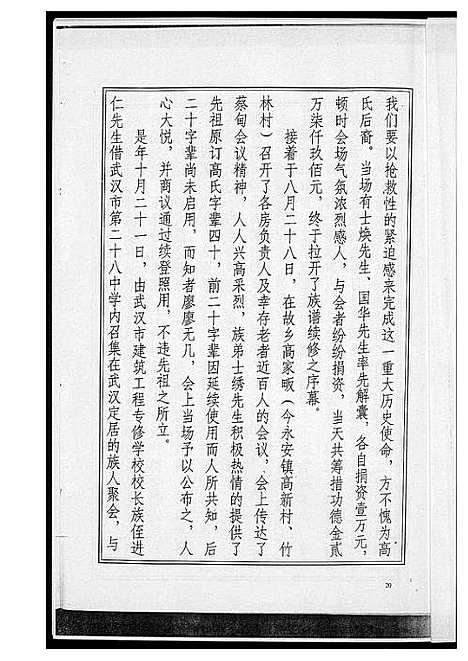 我们要以抢救性的紧迫感来完成这一重大历史使命，方不愧为高
氏后裔。当场有士焕先生、国华先生率先解囊，各自捐资壹万元，
顿时会场气氛浓烈感人，与会者纷纷捐资，当天共筹措功德金贰
万柒仟玖佰元，终于拉开了族谱续修之序幕。
接着于八月二十八日，在故乡高家畈（今永安镇高新村、竹
林村）召开了各房负责人及幸存老者近百人的会议，会上传达了
蔡甸会议精神，人人兴高采烈，族弟士绣先生积极热情的提供了
先祖原订高氏字辈四十，前二十字辈因延续使用而人所共知，后
二十字辈尚未启用，而知者廖廖无几，会上当场予以公布之，人
心大悦，并商议通过续登照用，不违先祖之所立。
是年十月二十一日，由武汉市建筑工程专修学校校长族侄进
仁先生借武汉市第二十八中学内召集在武汉定居的族人聚会，与
20